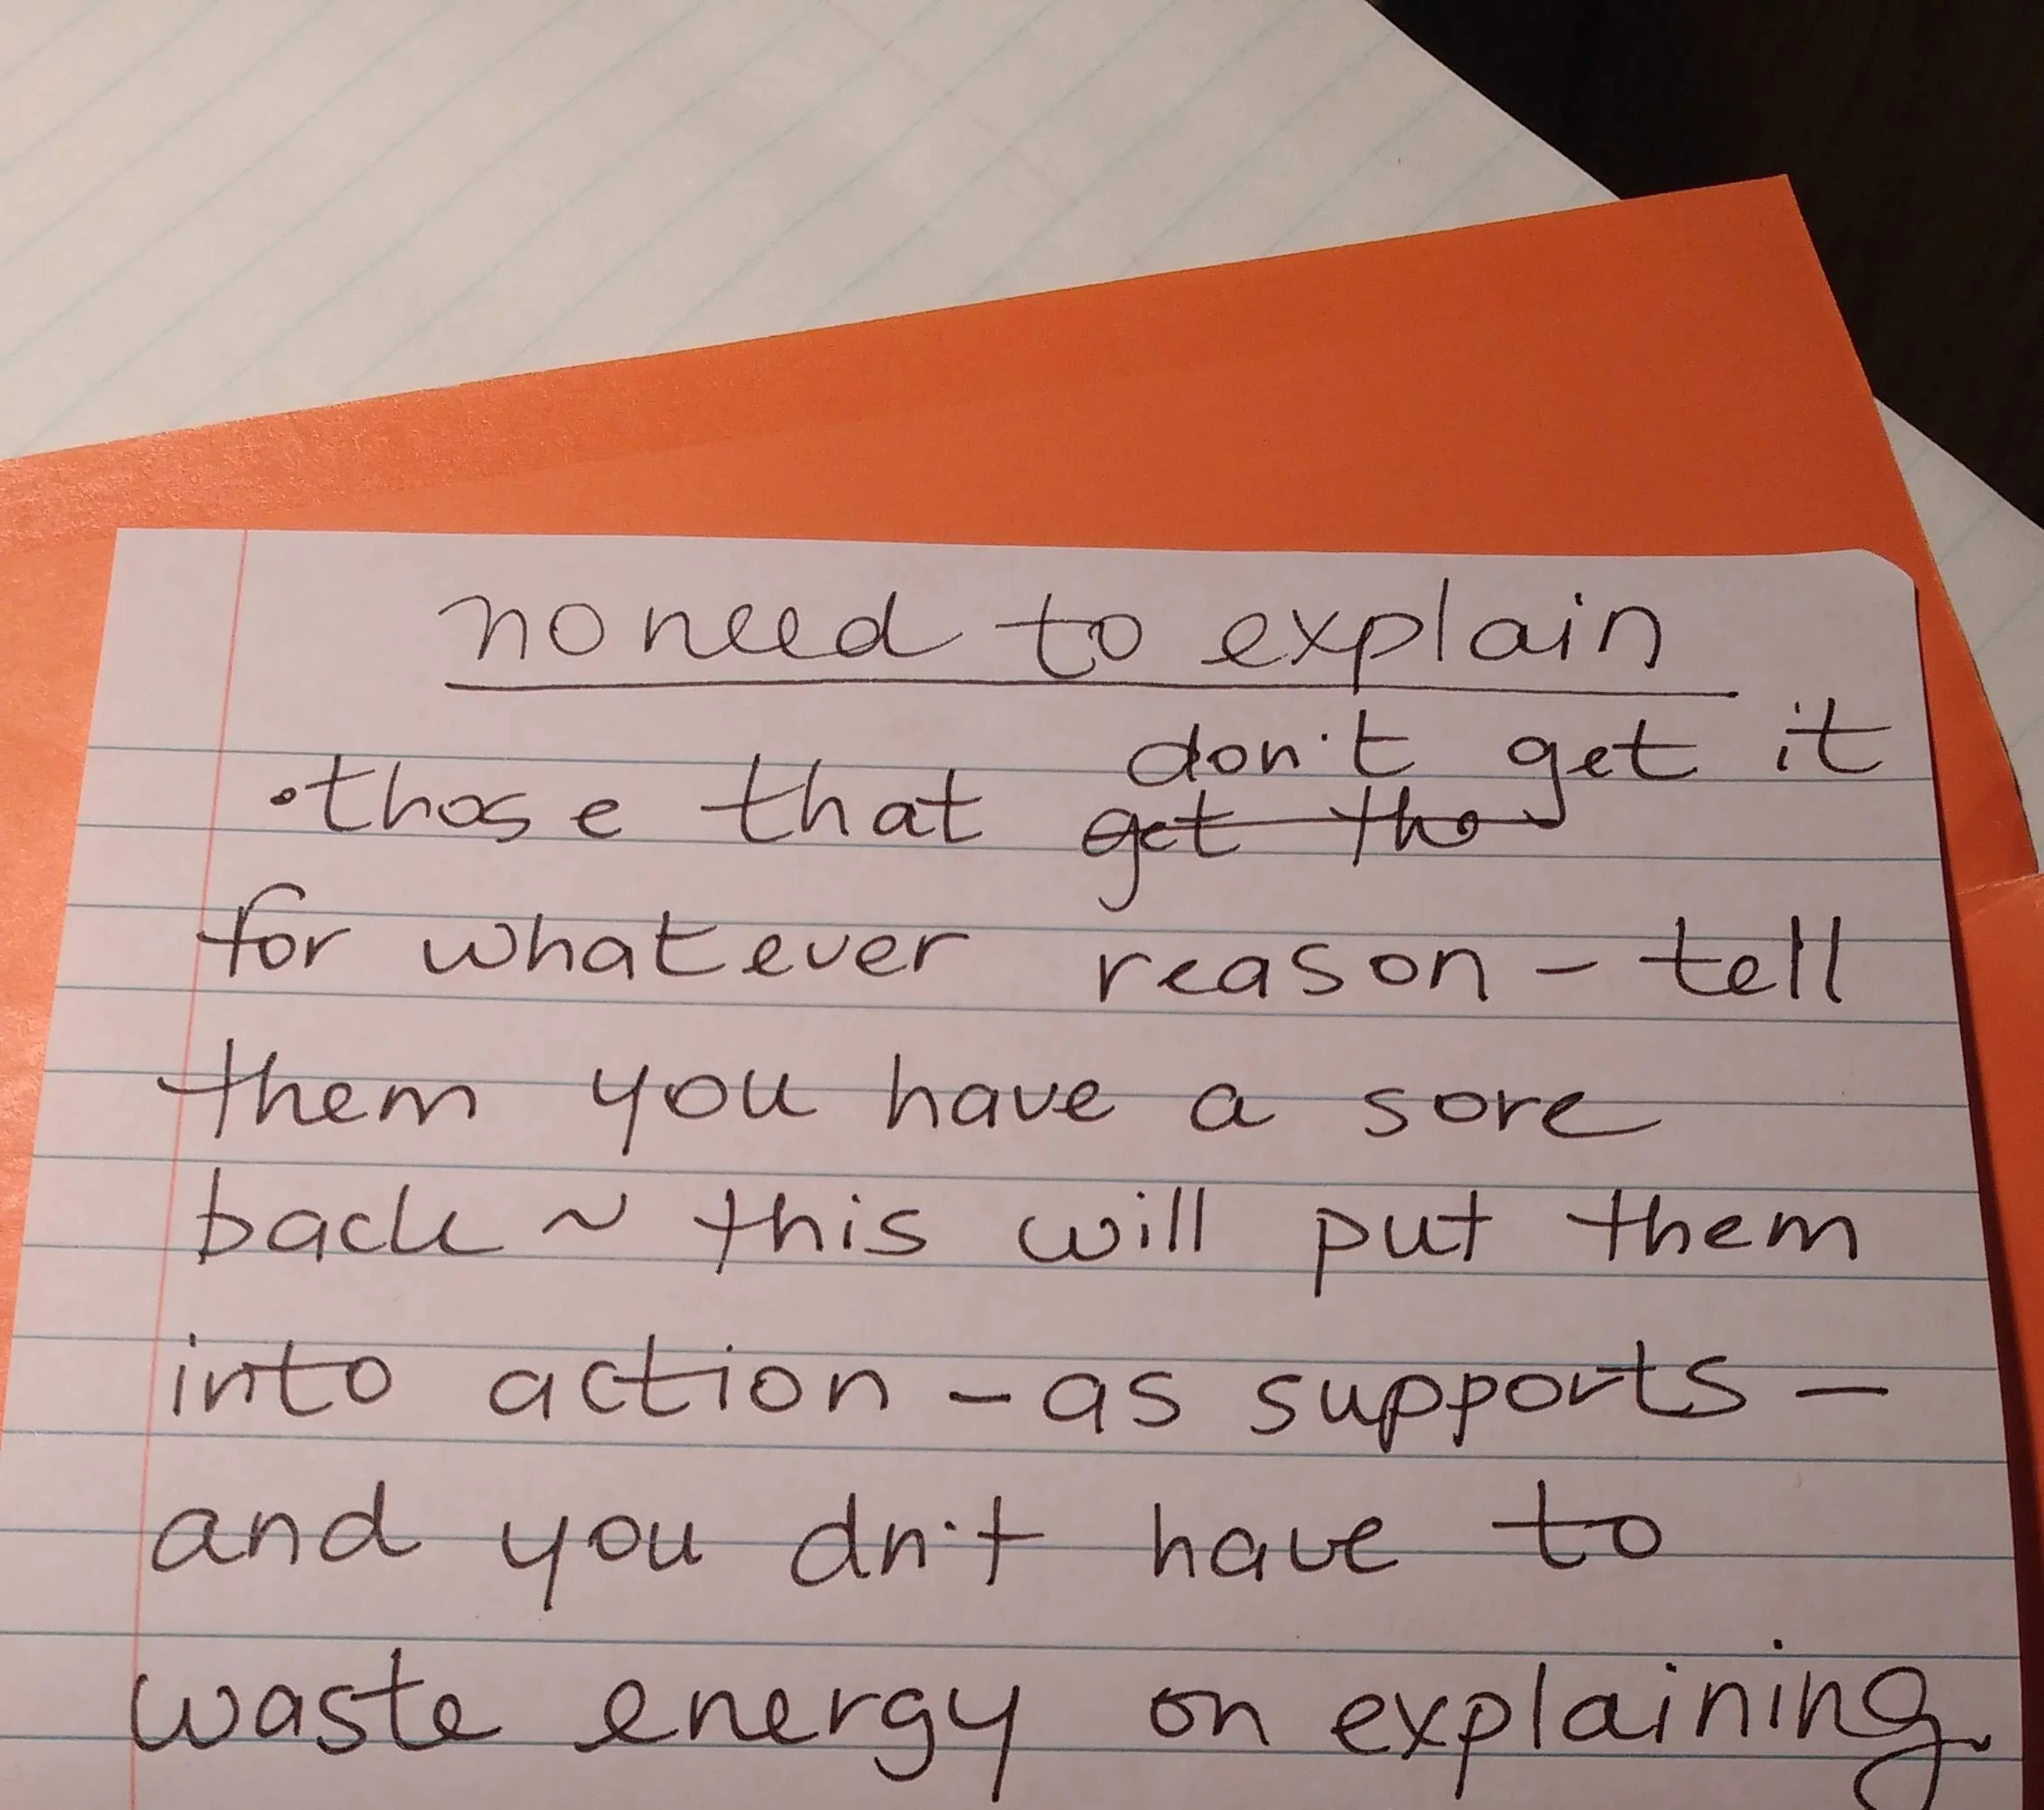 no need to explain
don't get it
• those that get the
for whatever reason – tell
them you have a sore
back ~ this will put them
into action – as supports –
and you dn't have to
waste energy on explaining